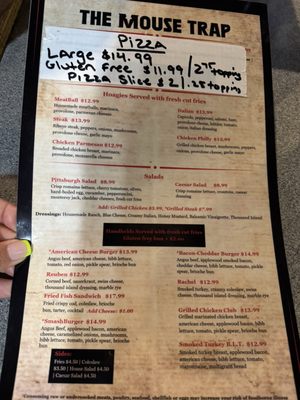 THE MOUSE TRAP
PIZZA
LARGE $14.99
Gluten Free $11.99 / 2.75 topping
Pizza Slice $2 / .25 topping
Hoagies Served with fresh cut fries
MeatBall $12.99
Homemade meatballs, marinara,
provolone, parmesan cheese
Steak $13.99
Ribeye steak, peppers, onions, mushrooms,
provolone cheese, garlic mayo
Chicken Parmesan $12.99
Breaded chicken breast, marinara,
provolone, mozzarella cheese
Italian $13.99
Capicola, pepperoni, salami, ham,
provolone cheese, lettuce, tomato,
onion, Italian dressing
Chicken Philly $12.99
Grilled chicken breast, mushrooms, peppers,
onions, provolone cheese, garlic mayo
Salads
Pittsburgh Salad $8.99
Crisp romaine lettuce, cherry tomatoes, olives,
hard-boiled egg, cucumber, pepperoncini,
monterey jack, cheddar cheese, fresh-cut fries
Caesar Salad $8.99
Crisp romaine lettuce, croutons, caesar
dressing
Add: Grilled Chicken $5.99, *Grilled Steak $7.99
Dressings: Homemade Ranch, Blue Cheese, Creamy Italian, Honey Mustard, Balsamic Vinaigrette, Thousand Island
Handhelds Served with fresh cut fries
Gluten free bun + $2.00
*American Cheese Burger $13.99
Angus beef, american cheese, bibb lettuce,
tomato, red onion, pickle spear, brioche
bun
Reuben $12.99
Corned beef, sauerkraut, swiss cheese,
thousand island dressing, marble rye
Fried Fish Sandwich $17.99
Fried crispy cod, coleslaw, brioche
bun, tartar, cocktail Add Cheese: $1.00
*SmashBurger $14.99
Angus Beef, applewood bacon, american
cheese, caramelized onions, mushrooms
bibb lettuce, tomato, pickle spear, brioche
bun
*Bacon-Cheddar Burger $14.99
Angus beef, applewood smoked bacon,
cheddar cheese, bibb lettuce, tomato, pickle
spear, brioche bun
Rachel $12.99
Smoked turkey, creamy coleslaw, swiss
cheese, thousand island dressing, marble rye
Grilled Chicken Club $13.99
Grilled marinated chicken breast,
american cheese, applewood bacon, bibb
lettuce, tomato, pickle spear, brioche bun
Smoked Turkey B.L.T. $12.99
Smoked turkey breast, applewood bacon,
american cheese, bibb lettuce, tomato,
mayonnaise, multigrain bread
Sides:
Fries $4.50 | Coleslaw
$3.50 | House Salad $4.50
| Caesar Salad $4.50
*Consuming raw or undercooked meats, poultry, seafood, shellfish or eggs may increase your risk of foodborne illness